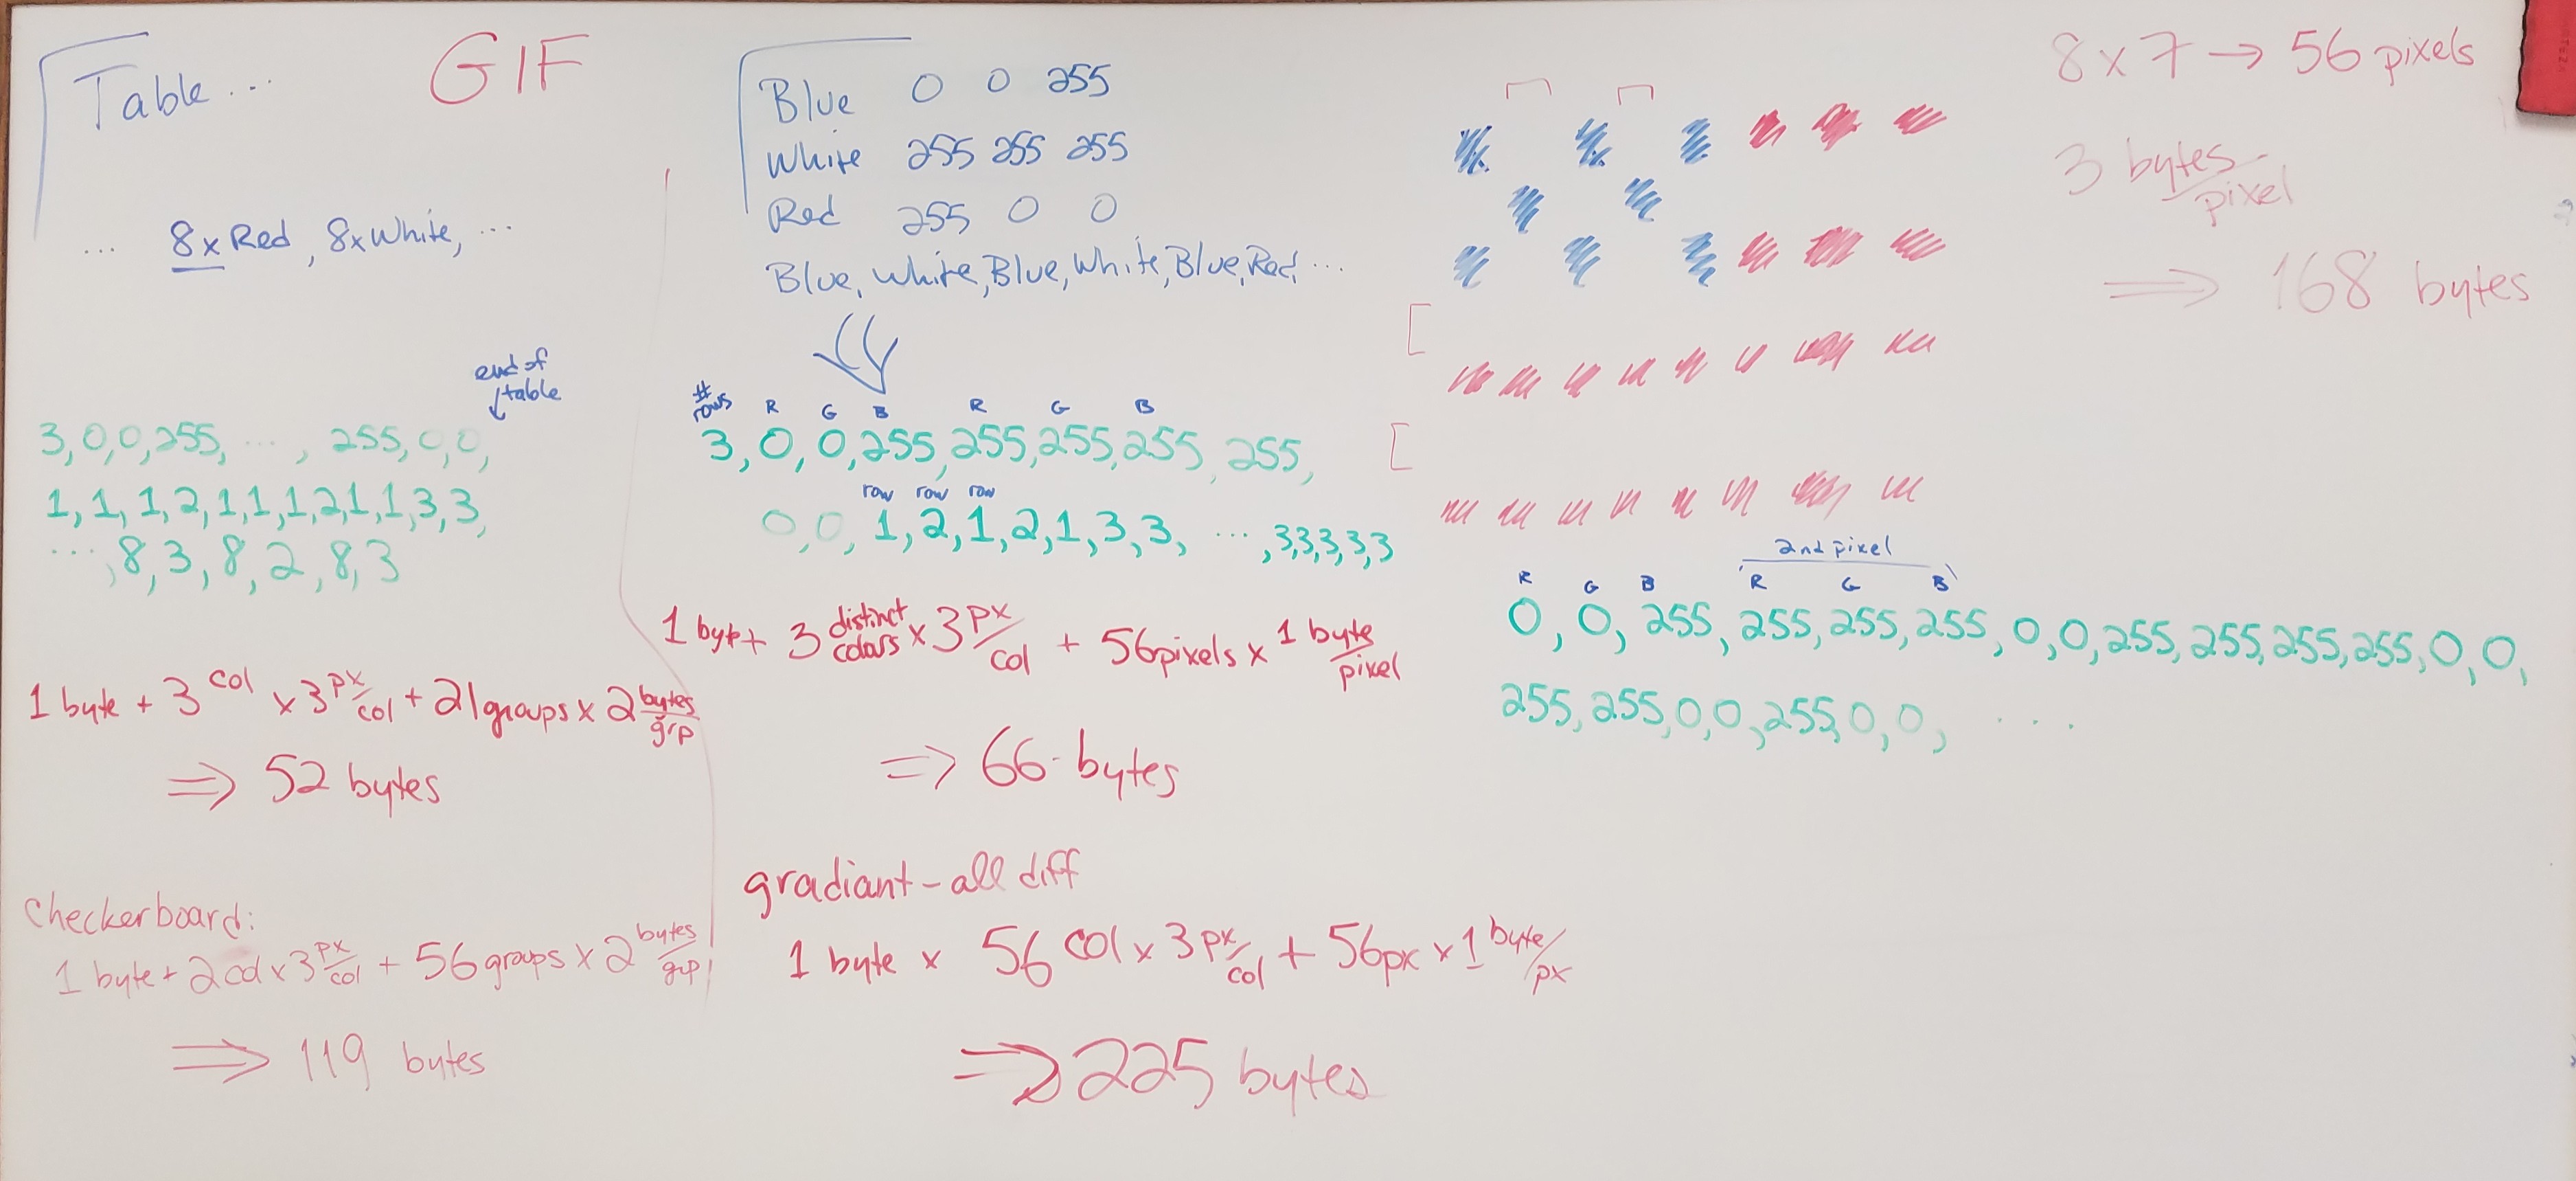 Table...
GIF
... 8x Red, 8xWhite, ...
end of
table
3,0,0,255, ... , 255,0,0,
1,1,1,2,1,1,1,2,1,1,3,3,
... ,8,3,8,2,8,3
1 byte + 3 col x 3 px/col + 21groups x 2 bytes/grp
⇒ 52 bytes
Checkerboard:
1 byte + 2 col x 3 px/col + 56 groups x 2 bytes/grp
⇒ 119 bytes
Blue 0 0 255
White 255 255 255
Red 255 0 0
Blue, White, Blue, White, Blue, Red, ...
# rows R G B R G B
3, 0, 0, 255, 255, 255, 255, 255,
row row row
0,0, 1,2,1,2,1,3,3, ... ,3,3,3,3,3
1 byte + 3 distinct colors x 3 px/col + 56pixels x 1 byte/pixel
⇒ 66 bytes
gradiant - all diff
1 byte x 56 col x 3 px/col + 56px x 1 byte/px
⇒ 225 bytes
8 x 7 → 56 pixels
3 bytes/pixel
⇒ 168 bytes
2nd pixel
R G B R G B
0, 0, 255, 255, 255, 255, 0, 0, 255, 255, 255, 255, 0, 0,
255, 255, 0, 0, 255, 0, 0, ....